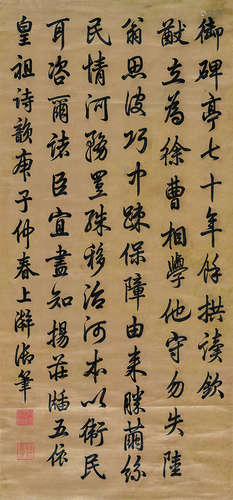 御碑亭七十年餘拱讀欽
猷立為徐曹相學他守勿失陸
翁思巧疎保障由來勝繭絲
民情河務殊移治河本以衛民
耳咨爾諸臣宜盡知揚莊牐五依
皇祖詩韻庚子仲春上澣御筆